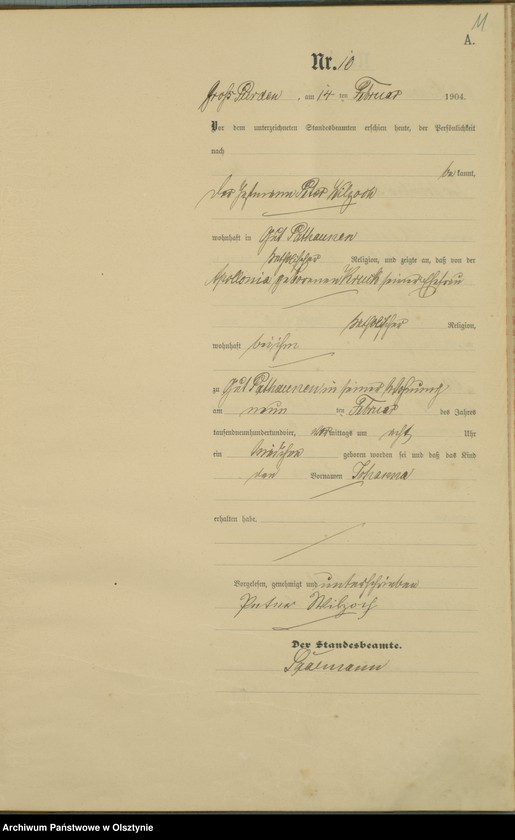 11
A.
Nr. 10
Groß Purden, am 14 ten Februar 1904.
Vor dem unterzeichneten Standesbeamten erschien heute, der Persönlichkeit
nach
be kannt,
der Peter
wohnhaft in Gut Patthaunen
katholischer Religion, und zeigte an, daß von der
Apollonia geborenen seiner Ehefrau
katholischer Religion,
wohnhaft bei ihm
zu Gut Patthaunen in seiner Wohnung
am neun ten Februar des Jahres
tausendneunhundertundvier, vor mittags um acht Uhr
ein Mädchen geboren worden sei und daß das Kind
den Vornamen Johanna
erhalten habe.
Vorgelesen, genehmigt und unterschrieben
Der Standesbeamte.
Archiwum Państwowe w Olsztynie